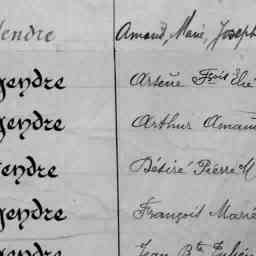 endre Amand, Marie, Joseph
gendre Arsène Fçois Elié
gendre Arthur Aman
gendre Désiré Pierre M
gendre François Marie
gendre Jean Bte Julien